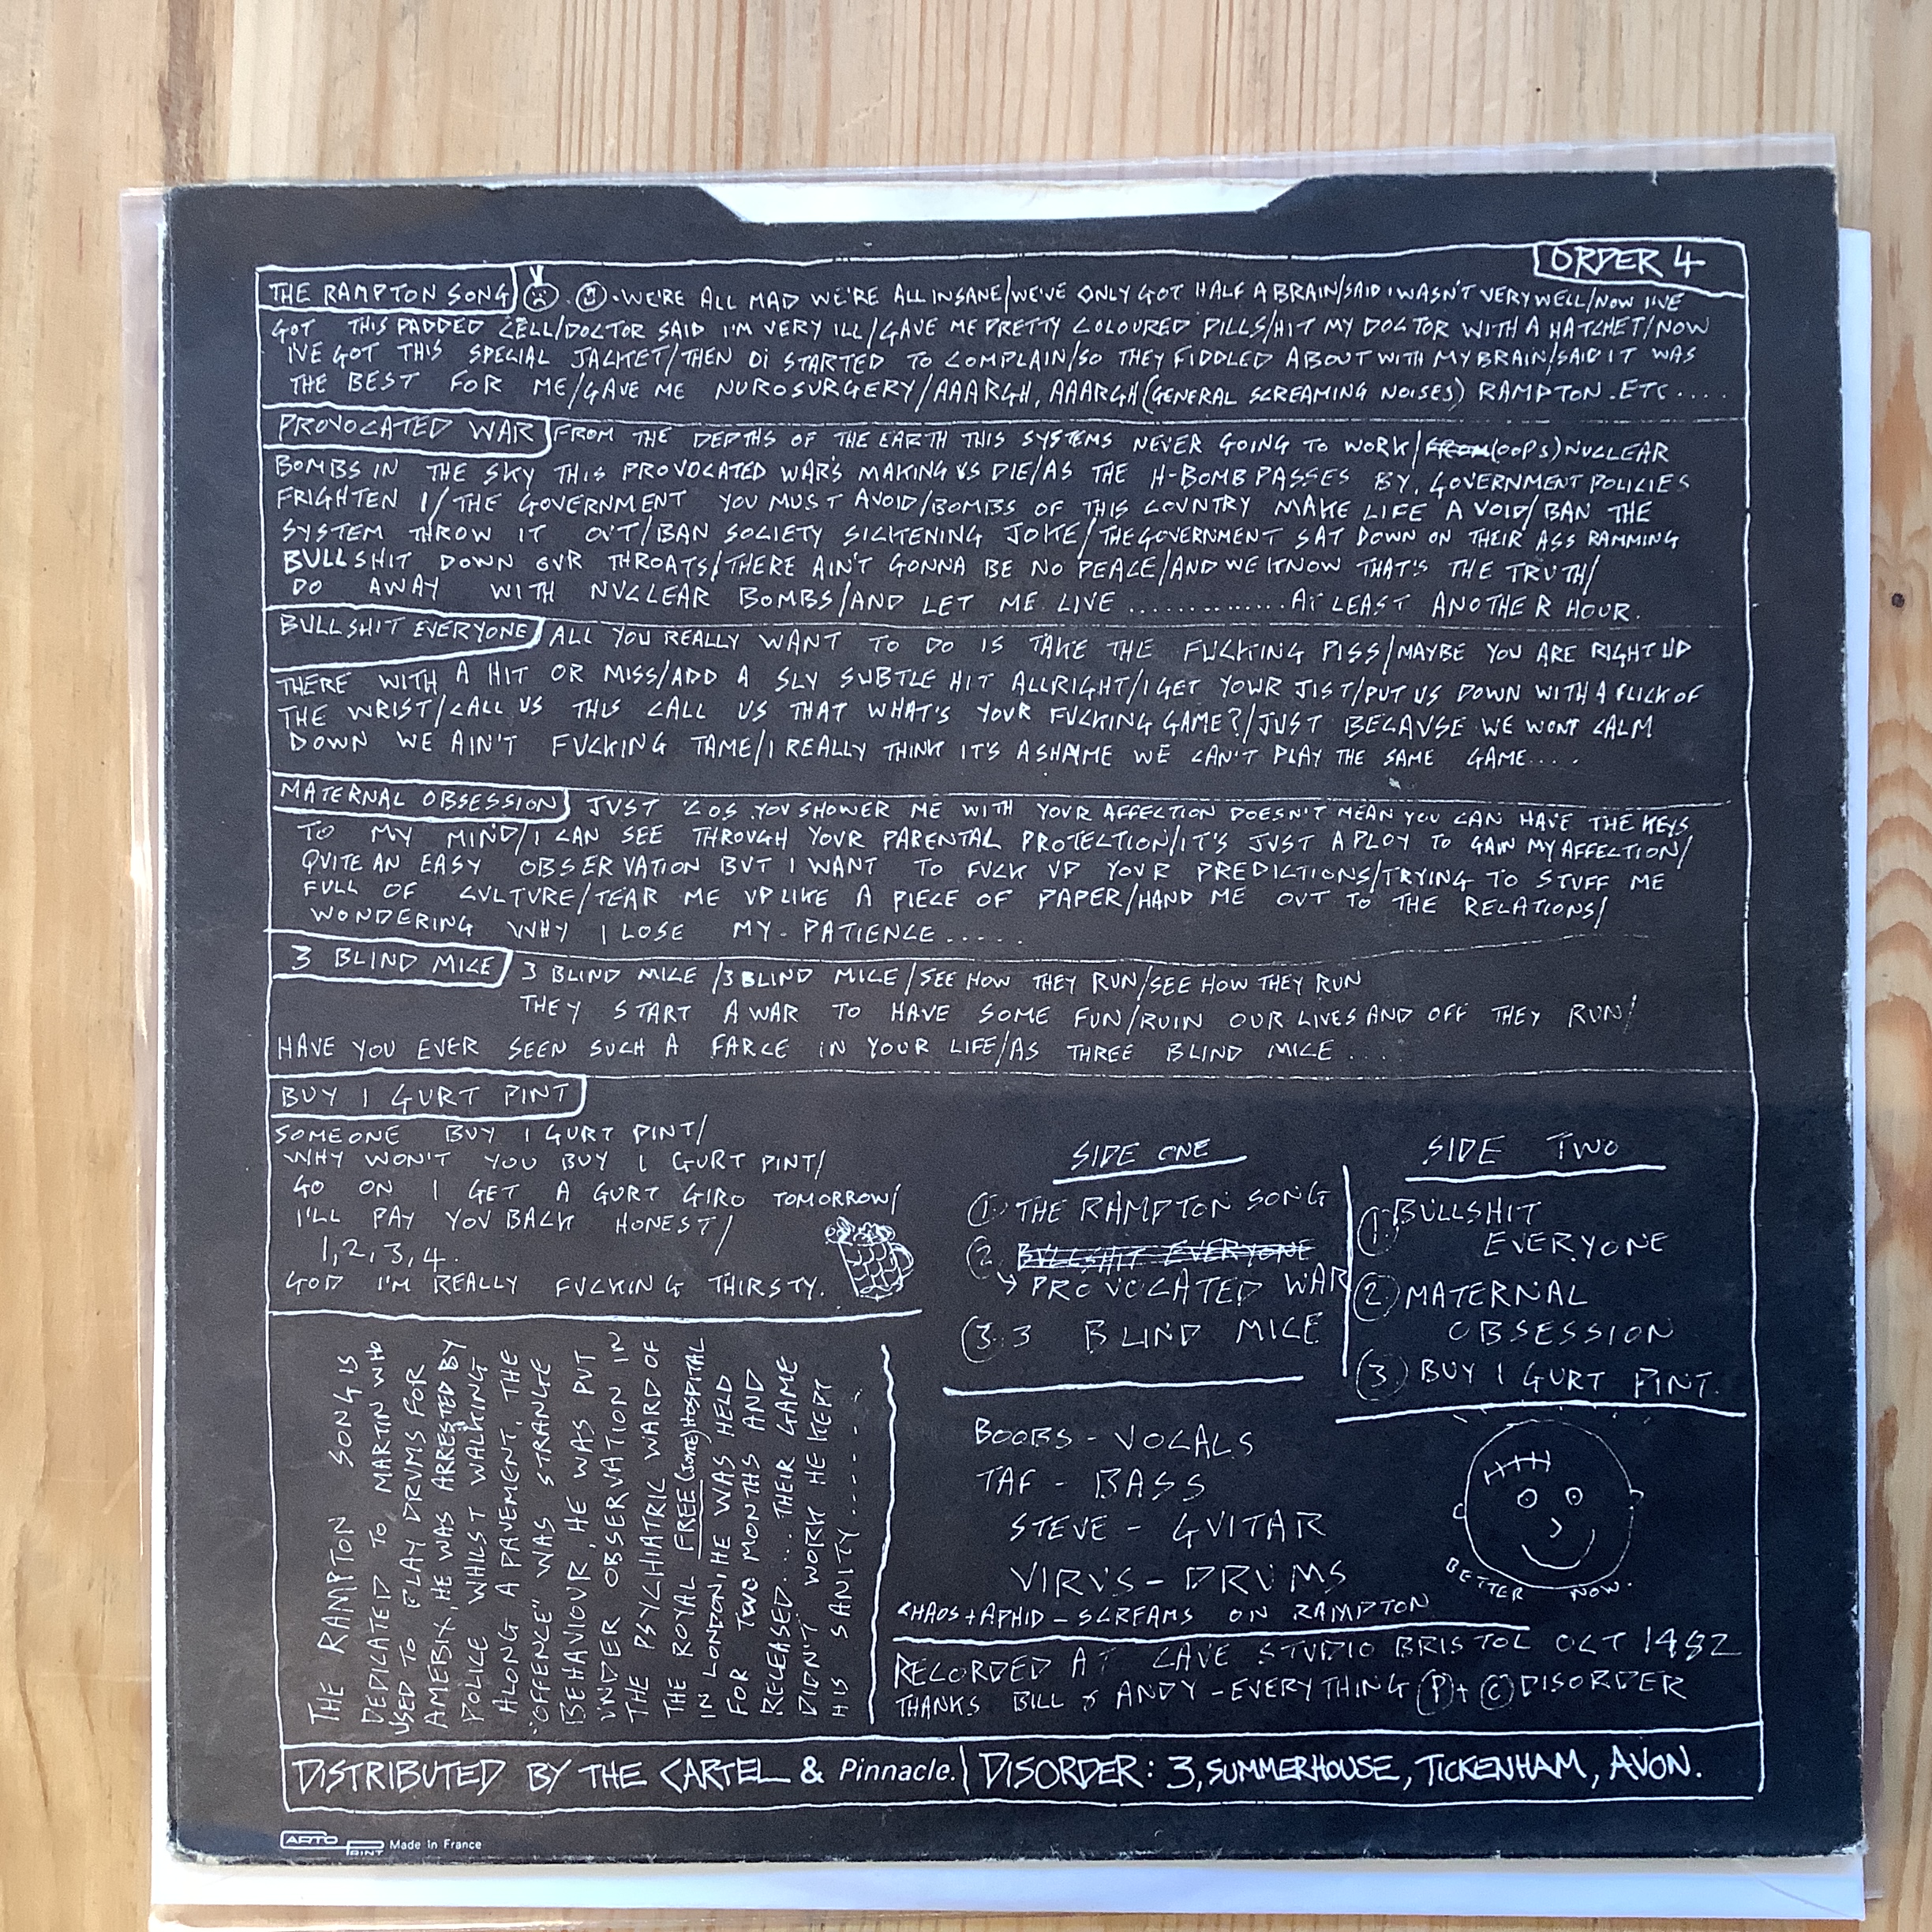 ORDER 4
THE RAMPTON SONG . WE'RE ALL MAD WE'RE ALL INSANE/WE'VE ONLY GOT HALF A BRAIN/SAID I WASN'T VERY WELL/NOW I'VE
GOT THIS PADDED CELL/DOCTOR SAID I'M VERY ILL/GAVE ME PRETTY COLOURED PILLS/HIT MY DOCTOR WITH A HATCHET/NOW
I'VE GOT THIS SPECIAL JACKET/THEN Oi STARTED TO COMPLAIN/SO THEY FIDDLED ABOUT WITH MY BRAIN/SAID IT WAS
THE BEST FOR ME/GAVE ME NUROSURGERY/AAARGH, AAARGH (GENERAL SCREAMING NOISES) RAMPTON .ETC ....
PROVOCATED WAR FROM THE DEPTHS OF THE EARTH THIS SYSTEMS NEVER GOING TO WORK/FROM (OOPS) NUCLEAR
BOMBS IN THE SKY THIS PROVOCATED WAR'S MAKING US DIE/AS THE H-BOMB PASSES BY, GOVERNMENT POLICIES
FRIGHTEN I/THE GOVERNMENT YOU MUST AVOID/BOMBS OF THIS COUNTRY MAKE LIFE A VOID/BAN THE
SYSTEM THROW IT OUT/BAN SOCIETY SICKENING JOKE/THE GOVERNMENT SAT DOWN ON THEIR ASS RAMMING
BULLSHIT DOWN OUR THROATS/THERE AIN'T GONNA BE NO PEACE/AND WE KNOW THAT'S THE TRUTH/
DO AWAY WITH NUCLEAR BOMBS/AND LET ME LIVE .............AT LEAST ANOTHER HOUR.
BULLSHIT EVERYONE ALL YOU REALLY WANT TO DO IS TAKE THE FUCKING PISS/MAYBE YOU ARE RIGHT UP
THERE WITH A HIT OR MISS/ADD A SLY SUBTLE HIT ALLRIGHT/I GET YOUR JIST/PUT US DOWN WITH A FLICK OF
THE WRIST/CALL US THIS CALL US THAT WHAT'S YOUR FUCKING GAME?/JUST BECAUSE WE WONT CALM
DOWN WE AIN'T FUCKING TAME/I REALLY THINK IT'S A SHAME WE CAN'T PLAY THE SAME GAME....
MATERNAL OBSESSION JUST 'COS YOU SHOWER ME WITH YOUR AFFECTION DOESN'T MEAN YOU CAN HAVE THE KEYS
TO MY MIND/I CAN SEE THROUGH YOUR PARENTAL PROTECTION/IT'S JUST A PLOY TO GAIN MY AFFECTION/
QUITE AN EASY OBSERVATION BUT I WANT TO FUCK UP YOUR PREDICTIONS/TRYING TO STUFF ME
FULL OF CULTURE/TEAR ME UP LIKE A PIECE OF PAPER/HAND ME OUT TO THE RELATIONS/
WONDERING WHY I LOSE MY PATIENCE.....
3 BLIND MICE 3 BLIND MICE/3 BLIND MICE/SEE HOW THEY RUN/SEE HOW THEY RUN
THEY START A WAR TO HAVE SOME FUN/RUIN OUR LIVES AND OFF THEY RUN/
HAVE YOU EVER SEEN SUCH A FARCE IN YOUR LIFE/AS THREE BLIND MICE ....
BUY I GURT PINT
SOMEONE BUY I GURT PINT/
WHY WON'T YOU BUY I GURT PINT/
GO ON I GET A GURT GIRO TOMORROW/
I'LL PAY YOU BACK HONEST/
1,2,3,4.
GOD I'M REALLY FUCKING THIRSTY.
SIDE ONE
1. THE RAMPTON SONG
2. BULLSHIT EVERYONE
PROVOCATED WAR
3. 3 BLIND MICE
SIDE TWO
1. BULLSHIT
EVERYONE
2 MATERNAL
OBSESSION
3 BUY I GURT PINT.
THE RAMPTON SONG IS
DEDICATED TO MARTIN WHO
USED TO PLAY DRUMS FOR
AMEBIX, HE WAS ARRESTED BY
POLICE WHILST WALKING
ALONG A PAVEMENT, THE
"OFFENCE" WAS STRANGE
BEHAVIOUR, HE WAS PUT
UNDER OBSERVATION IN
THE PSYCHIATRIC WARD OF
THE ROYAL FREE (JOKE) HOSPITAL
IN LONDON, HE WAS HELD
FOR TWO MONTHS AND
RELEASED... THEIR GAME
DIDN'T WORK HE KEPT
HIS SANITY......
BOOBS - VOCALS
TAF - BASS
STEVE - GUITAR
VIRUS - DRUMS
CHAOS + APHID - SCREAMS ON RAMPTON
BETTER NOW.
RECORDED AT CAVE STUDIO BRISTOL OCT 1982
THANKS BILL & ANDY - EVERYTHING Ⓟ + © DISORDER
DISTRIBUTED BY THE CARTEL & Pinnacle. | DISORDER: 3, SUMMERHOUSE, TICKENHAM, AVON.
ARTO PRINT Made in France